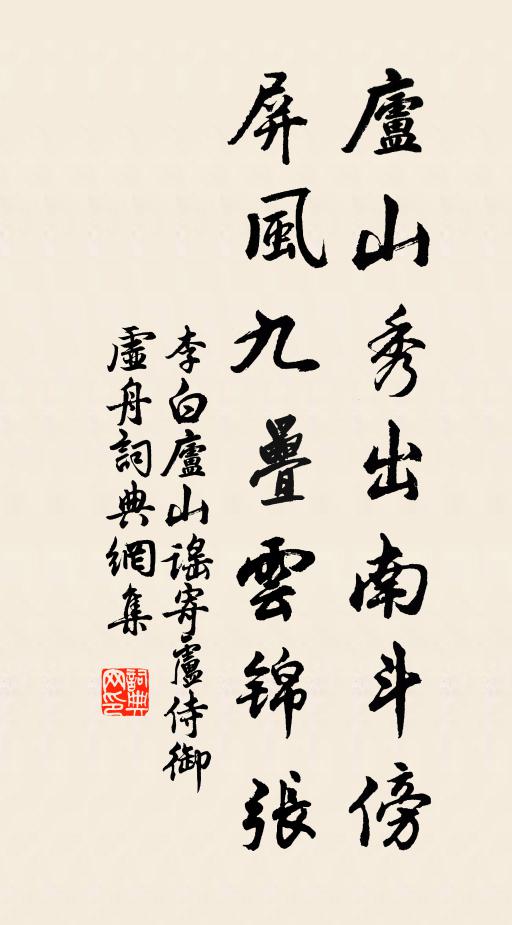 廬山秀出南斗傍
屏風九疊雲錦張
李白廬山謠寄盧侍御
虛舟詞典網集
詞典网印